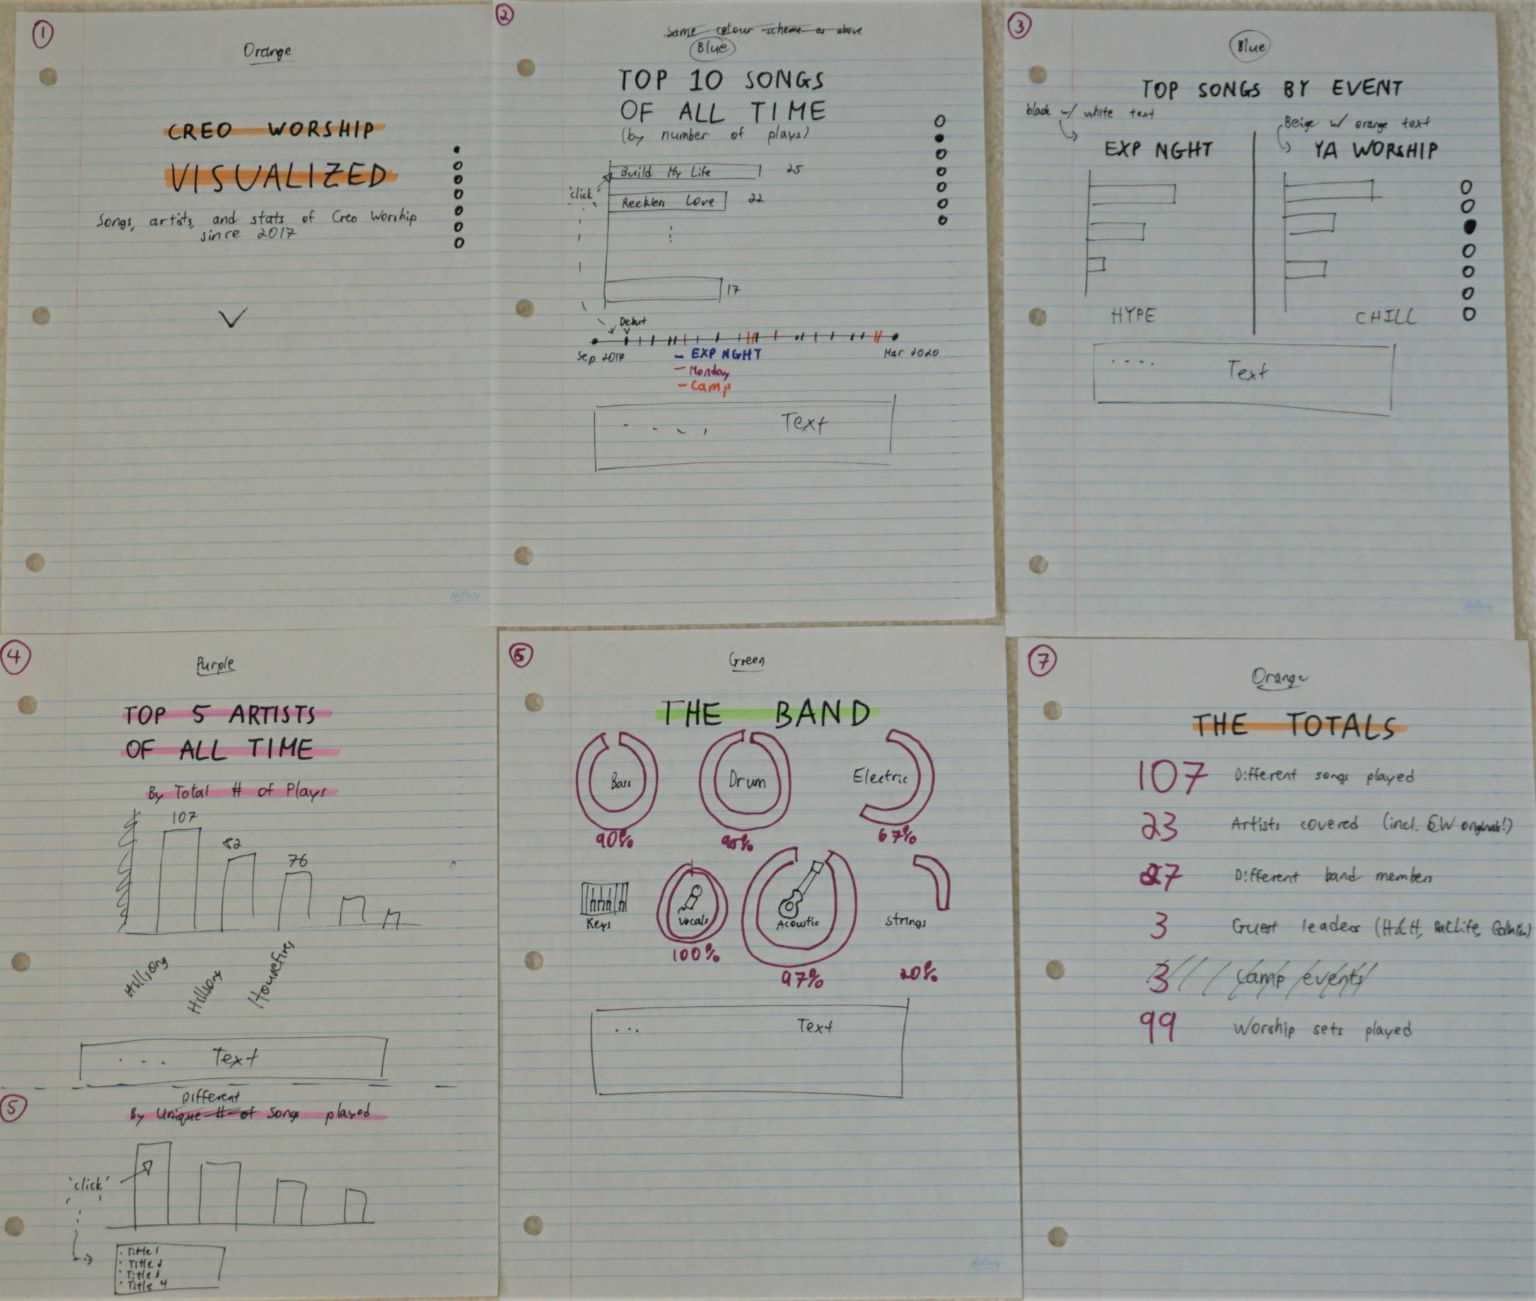 1
Orange
CREO WORSHIP
VISUALIZED
Songs, artists, and stats of Creo Worship
since 2017
2
Same colour scheme as above
Blue
TOP 10 SONGS
OF ALL TIME
(by number of plays)
Build My Life 25
'click'
Reckless Love 22
17
Debut
Sep 2017
Mar 2020
- EXP NGHT
- Monday
- Camp
.... Text
3
Blue
TOP SONGS BY EVENT
black w/ white text
Beige w/ orange text
EXP NGHT
YA WORSHIP
HYPE
CHILL
.... Text
4
Purple
TOP 5 ARTISTS
OF ALL TIME
By Total # of Plays
107
82
76
Hillsong
Housefires
... Text
5
Different
By Unique # of Songs played
'click'
· Title 1
· Title 2
· Title 3
· Title 4
Green
THE BAND
Bass
Drum
Electric
90%
90%
67%
Keys
Vocals
Acoustic
Strings
100%
97%
20%
... Text
7
Orange
THE TOTALS
107 Different songs played
23 Artists covered (incl. originals!)
27 Different band members
3 Guest leaders
3 Camp events
99 Worship sets played